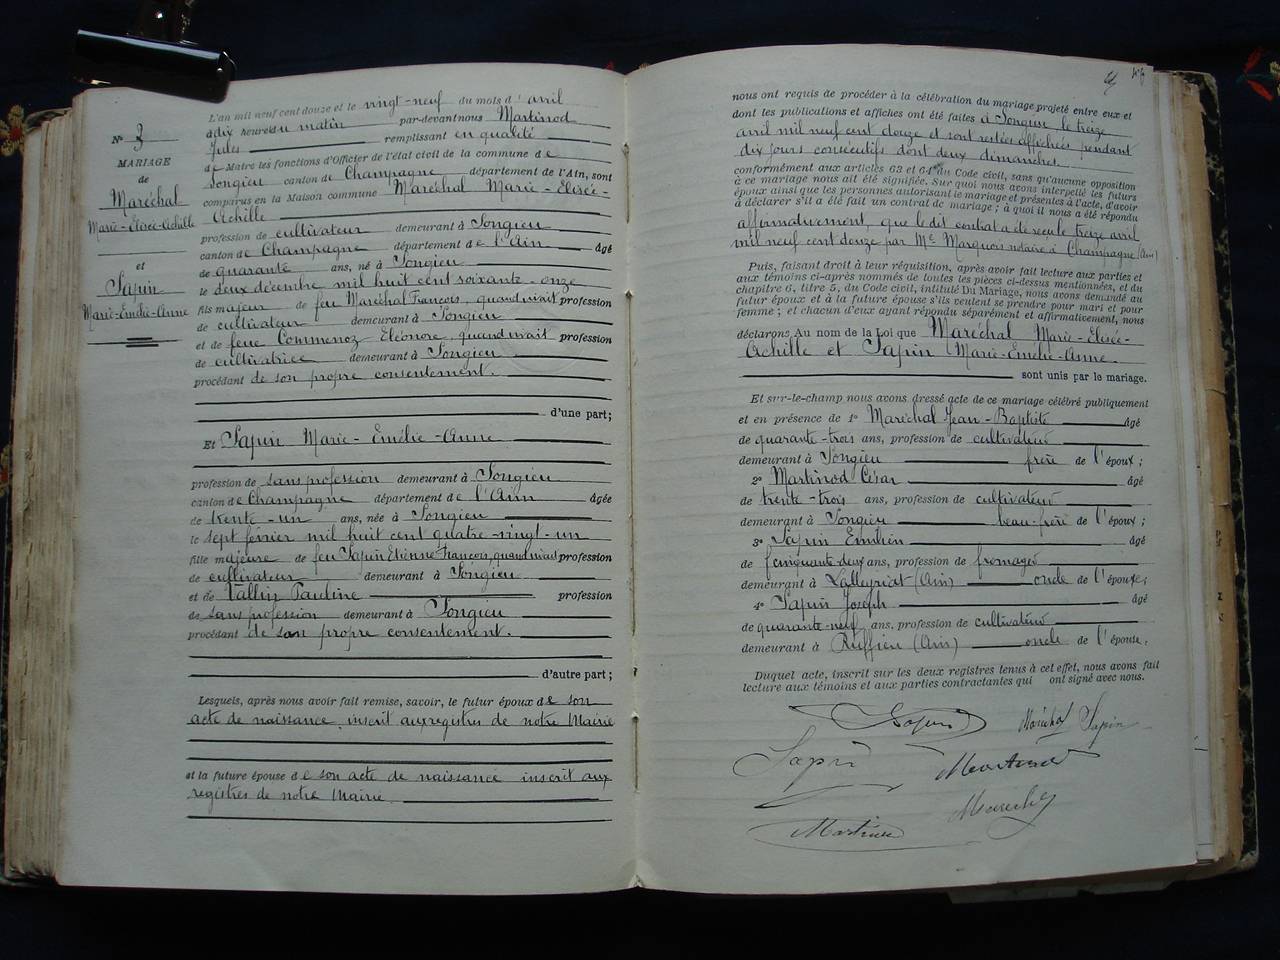 N° 3
MARIAGE
de
Maréchal
Marie-Elisée-Achille
et
Sapin
Marie-Emélie-Anne
L'an mil neuf cent douze et le vingt-neuf du mois d'avril
à dix heures du matin par-devant nous Martinod
Jules remplissant en qualité
de Maire les fonctions d'Officier de l'état civil de la commune de
Songieu canton de Champagne département de l'Ain, sont
comparus en la Maison commune Maréchal Marie-Elisée-
Achille
profession de cultivateur demeurant à Songieu
canton de Champagne département de l'Ain âgé
de quarante ans, né à Songieu
le deux décembre mil huit cent soixante-onze
fils majeur de feu Maréchal François, quand vivait profession
de cultivateur demeurant à Songieu
et de feue Commenoz Eléonore, quand vivait profession
de cultivatrice demeurant à Songieu
procédant de son propre consentement.
d'une part;
Et Sapin Marie-Emélie-Anne
profession de sans profession demeurant à Songieu
canton de Champagne département de l'Ain âgée
de trente-un ans, née à Songieu
le sept février mil huit cent quatre-vingt-un
fille majeure de feu Sapin Etienne-François, quand vivait profession
de cultivateur demeurant à Songieu
et de Vallin Pauline profession
de sans profession demeurant à Songieu
procédant de son propre consentement.
d'autre part;
Lesquels, après nous avoir fait remise, savoir, le futur époux de son
acte de naissance inscrit aux registres de notre Mairie
et la future épouse de son acte de naissance inscrit aux
registres de notre Mairie.
nous ont requis de procéder à la célébration du mariage projeté entre eux et
dont les publications et affiches ont été faites à Songieu le treize
avril mil neuf cent douze et sont restées affichées pendant
dix jours consécutifs dont deux dimanches.
conformément aux articles 63 et 64 du Code civil, sans qu'aucune opposition
à ce mariage nous ait été signifiée. Sur quoi nous avons interpellé les futurs
époux ainsi que les personnes autorisant le mariage et présentes à l'acte, d'avoir
à déclarer s'il a été fait un contrat de mariage; à quoi il nous a été répondu
affirmativement, que le dit contrat a été reçu le treize avril
mil neuf cent douze par Me notaire à Champagne (Ain)
Puis, faisant droit à leur réquisition, après avoir fait lecture aux parties et
aux témoins ci-après nommés de toutes les pièces ci-dessus mentionnées, et du
chapitre 6, titre 5, du Code civil, intitulé Du Mariage, nous avons demandé au
futur époux et à la future épouse s'ils veulent se prendre pour mari et pour
femme; et chacun d'eux ayant répondu séparément et affirmativement, nous
déclarons Au nom de la Loi que Maréchal Marie-Elisée-
Achille et Sapin Marie-Emélie-Anne.
sont unis par le mariage.
Et sur-le-champ nous avons dressé acte de ce mariage célébré publiquement
et en présence de 1° Maréchal Jean-Baptiste âgé
de quarante-trois ans, profession de cultivateur
demeurant à Songieu frère de l'époux;
2° Martinod César âgé
de trente-trois ans, profession de cultivateur
demeurant à Songieu beau-frère de l'époux;
3° Sapin Emilien âgé
de cinquante deux ans, profession de fromager
demeurant à Lalleyriat (Ain) oncle de l'épouse;
4° Sapin Joseph âgé
de quarante-neuf ans, profession de cultivateur
demeurant à Ruffieu (Ain) oncle de l'épouse;
Duquel acte, inscrit sur les deux registres tenus à cet effet, nous avons fait
lecture aux témoins et aux parties contractantes qui ont signé avec nous.
Sapin Maréchal Sapin
Sapin Martinod
Maréchal
Martinod